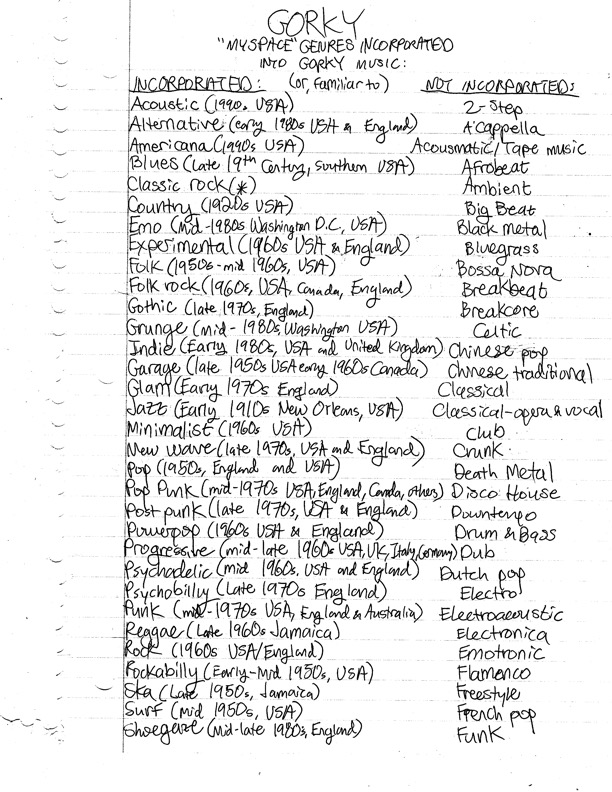 GORKY
"MYSPACE" GENRES INCORPORATED
INTO GORKY MUSIC:
INCORPORATED: (or, familiar to) NOT INCORPORATED:
Acoustic (1990s USA) 2-Step
Alternative (early 1980s USA & England) A'Cappella
Americana (1990s USA) Acousmatic/Tape music
Blues (Late 19th Century, Southern USA) Afrobeat
Classic rock (*) Ambient
Country (1920s USA) Big Beat
Emo (Mid-1980s Washington D.C, USA) Black metal
Experimental (1960s USA & England) Bluegrass
Folk (1950s-mid 1960s, USA) Bossa Nova
Folk rock (1960s, USA, Canada, England) Breakbeat
Gothic (late 1970s, England) Breakcore
Grunge (mid-1980s, Washington USA) Celtic
Indie (Early 1980s, USA and United Kingdom) Chinese pop
Garage (late 1950s USA early 1960s Canada) Chinese traditional
Glam (Early 1970s England) Classical
Jazz (Early 1910s New Orleans, USA) Classical-opera & vocal
Minimalist (1960s USA) Club
New Wave (late 1970s, USA and England) Crunk
Pop (1950s, England and USA) Death Metal
Pop Punk (mid-1970s USA, England, Canda, others) Disco House
Post punk (late 1970s, USA & England) Downtempo
Powerpop (1960s USA & England) Drum & Bass
Progressive (mid-late 1960s USA, UK, Italy, Germany) Dub
Psychadelic (mid 1960s. USA and England) Dutch pop
Psychobilly (Late 1970s England) Electro
Punk (mid-1970s USA, England & Australia) Electroacoustic
Reggae (Late 1960s Jamaica) Electronica
Rock (1960s USA/England) Emotronic
Rockabilly (Early-Mid 1950s, USA) Flamenco
Ska (Late 1950s, Jamaica) Freestyle
Surf (Mid 1950s, USA) French pop
Shoegaze (Mid-late 1980s, England) Funk